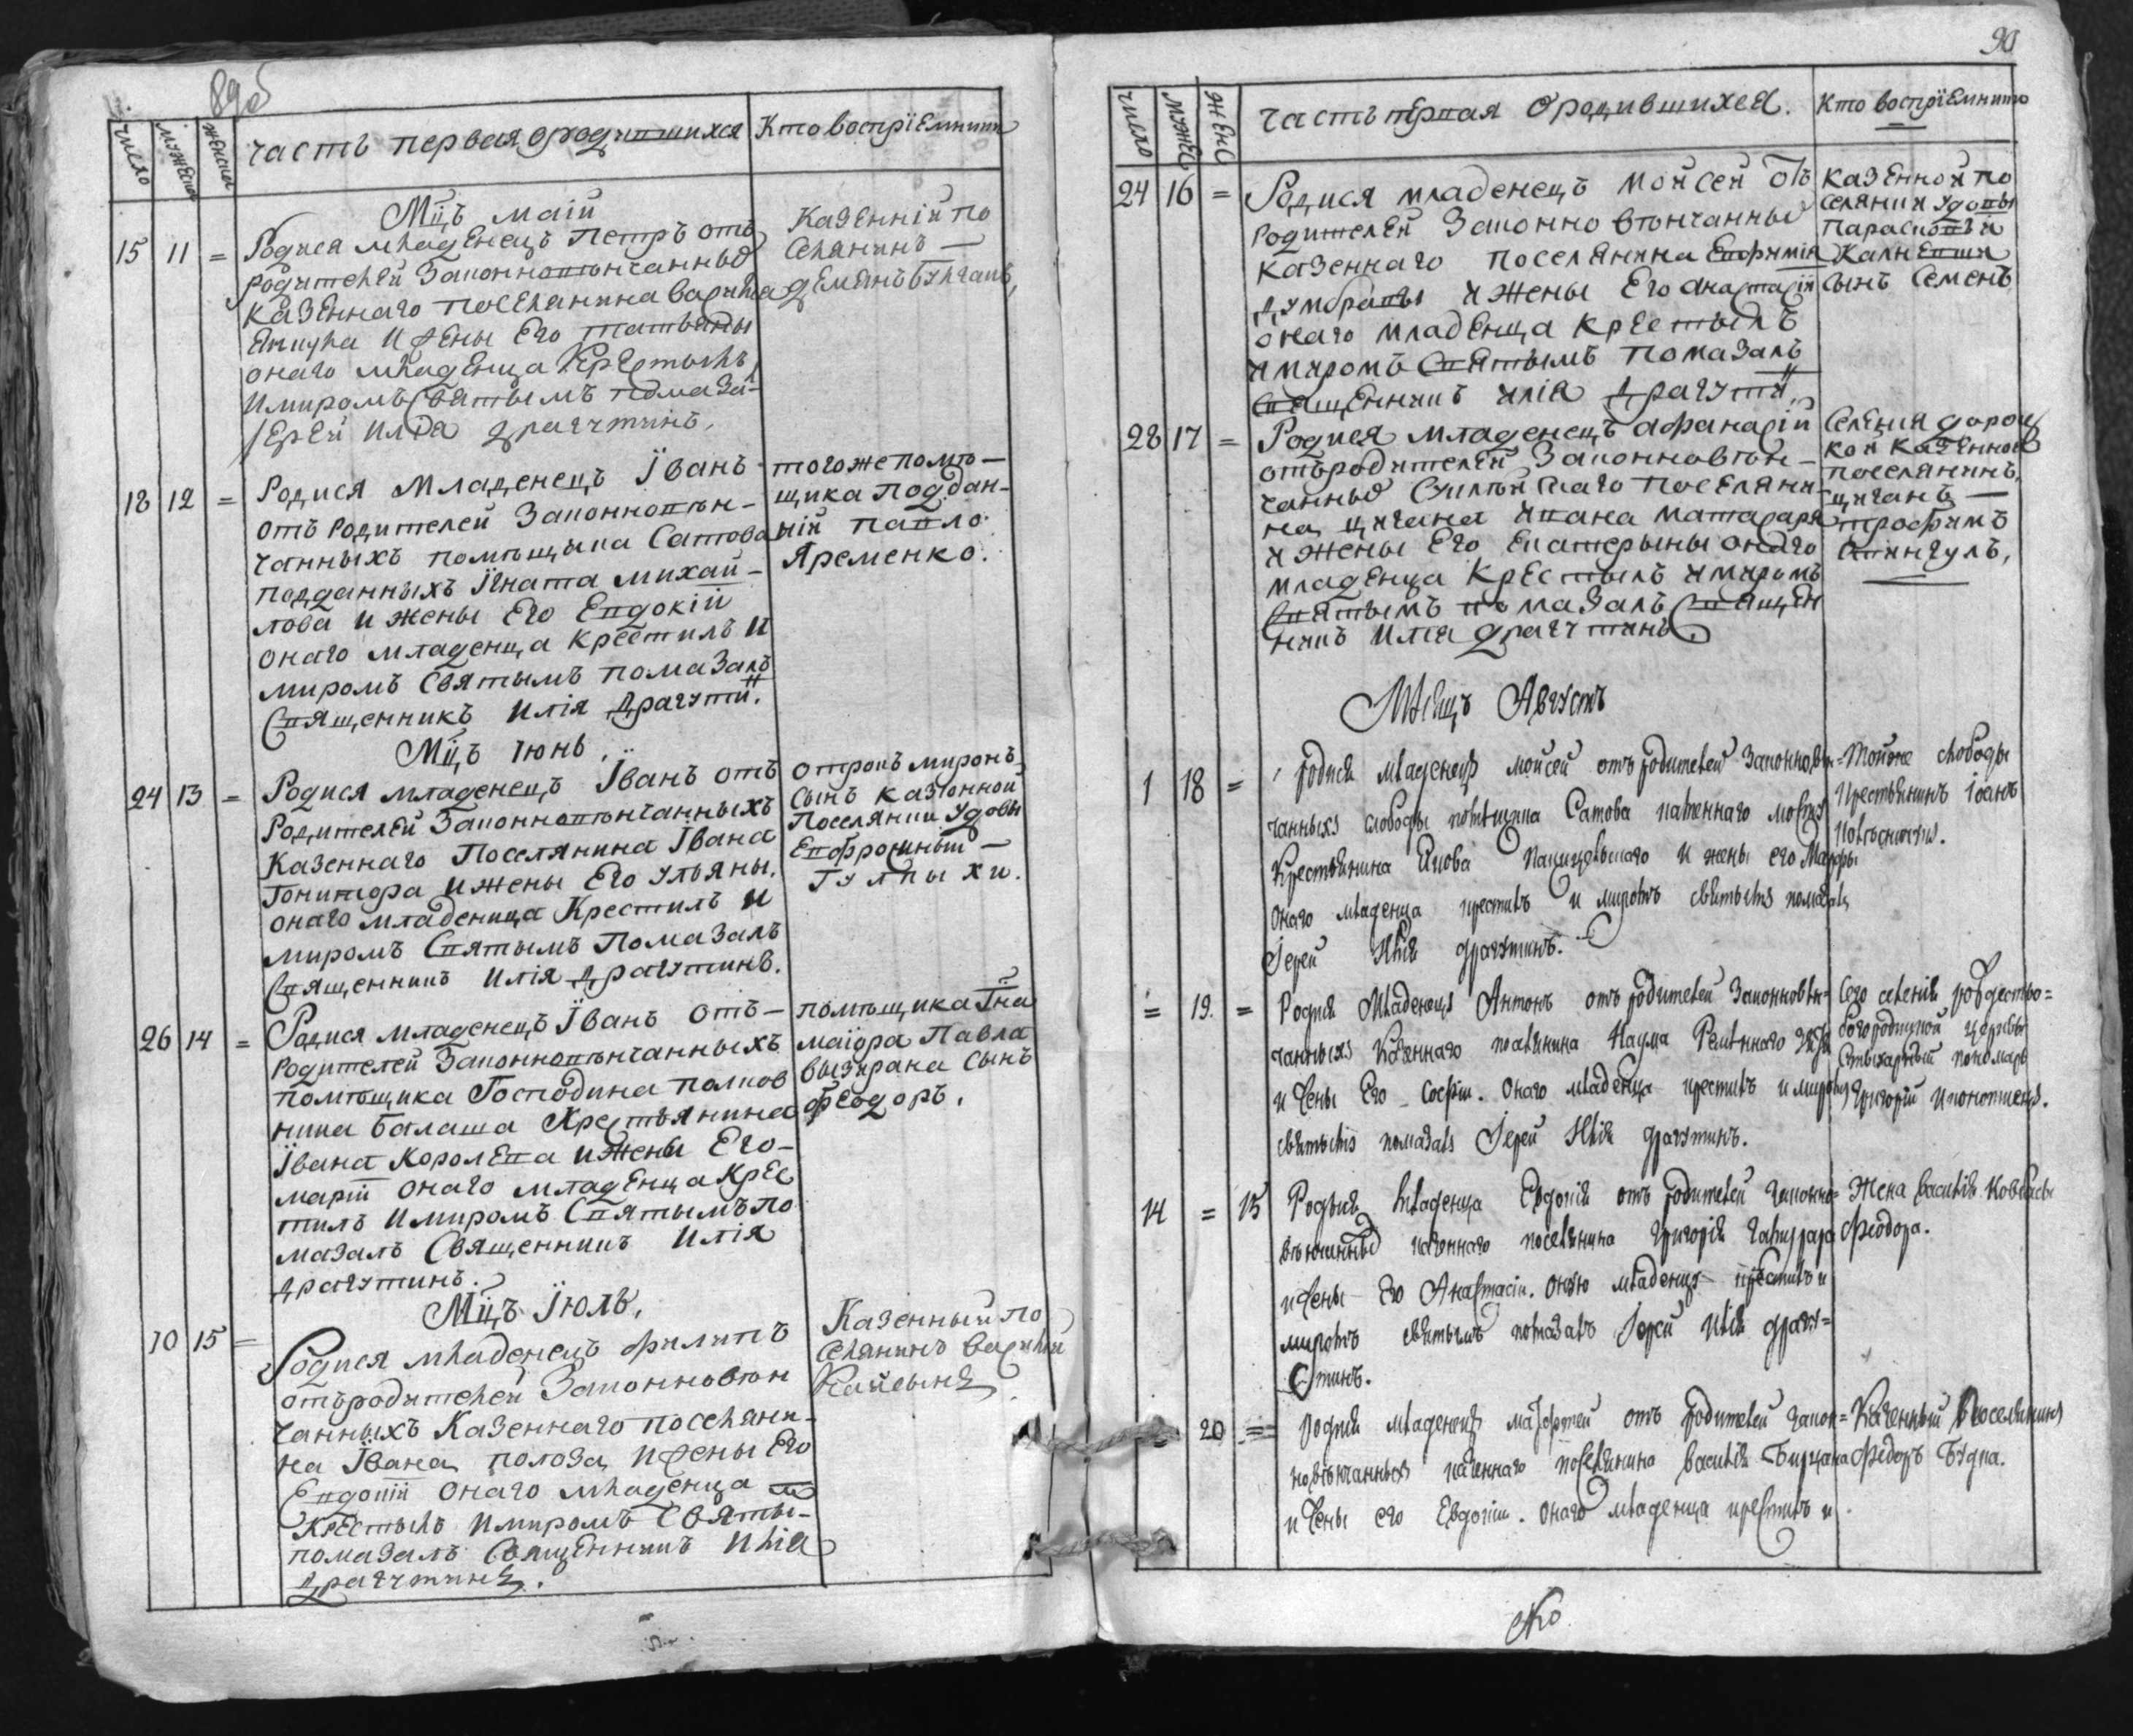 89об
число мужеска женска
Часть первая о родившихся Кто воспріемники
Мцъ маій
15 11 = Родися младенецъ Петръ отъ
родителей Законновѣнчанныхъ
казеннаго поселянина Василія
и жены Его татьяны
онаго младенца Крестылъ
и миромъ Святымъ помаза
Іерей Илія Драгутинъ.
Казенній по
селянинъ —
Демянъ
18 12 = Родися Младенецъ Їванъ
отъ родителей Законновѣн-
чанныхъ помѣщыка Сатова
подданныхъ Їгната михай-
лова и жены Его Евдокіи
онаго младенца крестилъ и
миромъ Святымъ помазалъ
Священникъ Илія Драгутин.
того же помѣ-
щика поддан-
ній павло
Яременко.
Мцъ Іюнь.
24 13 = Родися младенецъ Їванъ отъ
Родителей Законновѣнчанныхъ
Казеннаго Поселянина Ївана
и жены Его Ульяны.
онаго младенца Крестилъ и
миромъ Святымъ Помазалъ
Священникъ Илія Драгутинъ.
отрокъ миронъ
Сынъ казіонной
Поселянки Удовы
Евфросиныи —
26 14 = Родися младенецъ Їванъ отъ —
Родителей Законновѣнчанныхъ
помѣщика Господина полков
ника Балаша Крестьянина
Ївана Королева и жены Его —
маріи онаго младенца Крес
тилъ и миромъ Святымъ по
мазалъ Священникъ Илія
Драгутинъ.
помѣщика Гна
маіора Павла
сынъ
феодоръ.
Мцъ Їюль.
10 15 = Родися младенецъ филипъ
отъ родителей Законновѣн
чанныхъ Казеннаго поселяни-
на Ївана полоза и жены Его
Евдокіи онаго младенца
крестылъ и миромъ Святы-
помазалъ Священникъ Илія
Драгутинъ.
Казенный по
селянинъ Василій
90
число мужес женс
Часть первая О родившихся. Кто воспріемники
24 16 = Родися младенецъ мойсей Отъ
родителей Законно вѣнчанныхъ
казеннаго поселянина Евфимія
Думбравы и жены Его анастасіи
онаго младенца крестылъ
и миромъ Святымъ помазалъ
Священникъ илія Драгутин.
казенной по
селянки удовы
параскевіи
сынъ Семенъ
28 17 = Родися младенецъ афанасій
отъ родителей Законновѣн-
чанныхъ поселяни-
на цигана ивана
и жены Его Екатерыны онаго
младенца Крестылъ и миромъ
Святымъ помазалъ Священ
никъ Илія Драгутинъ
Селенія
кои казенной
поселянинъ,
циганъ —
трофимъ
Мѣсяцъ Августъ
1 18 = родися младенецъ мойсей отъ родителей Законновѣн=
чанныхъ слободы помѣщика Сатова
Крестьянина Якова и жены его Марфы
онаго младенца крестилъ и миромъ святымъ помазалъ
Іерей Илія Драгутинъ.
Тойже слободы
Крестьянинъ Іоанъ
= 19. = Родися Младенецъ Антонъ отъ родителей Законновѣн=
чанныхъ Казеннаго поселянина Наума
и жены Его Софіи. онаго младенца крестилъ и миромъ
святымъ помазалъ Іерей Илія Драгутинъ.
Сего селенія рождество=
богородичной церквы
Стыхарный пономарь
Григорій
14 = 15 Родыся младенца Евдокія отъ родителей законно=
вѣнчанныхъ казеннаго поселянина Григорія
и жены Его Анастасіи. оную младенцу крестилъ и
миромъ святымъ помазалъ Іерей Илія Драгу=
тинъ.
Жена василія Ковбасы
Феодора.
= 20 = Родися младенецъ отъ родителей закон=
новѣнчанныхъ казеннаго поселянина василія
и жены его Евдокіи. онаго младенца крестилъ и
Казенный Поселянинъ
Федоръ